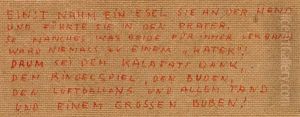 EINST NAHM EIN ESEL SIE AN DER HAND
UND FÜHRTE SIE IN DEN PRATER.
MANCHES WAS BEIDE FÜR IMMER VERBAND
WARD NIEMALS ZU EINEM „HATER".
DRUM SEI DEM KALAFATI DANK,
DEN RINGELSPIEL, DEN BUDEN,
DEN LUFTBALLONS UND ALLEM TAND
UND EINEM GROSSEN BUBEN!